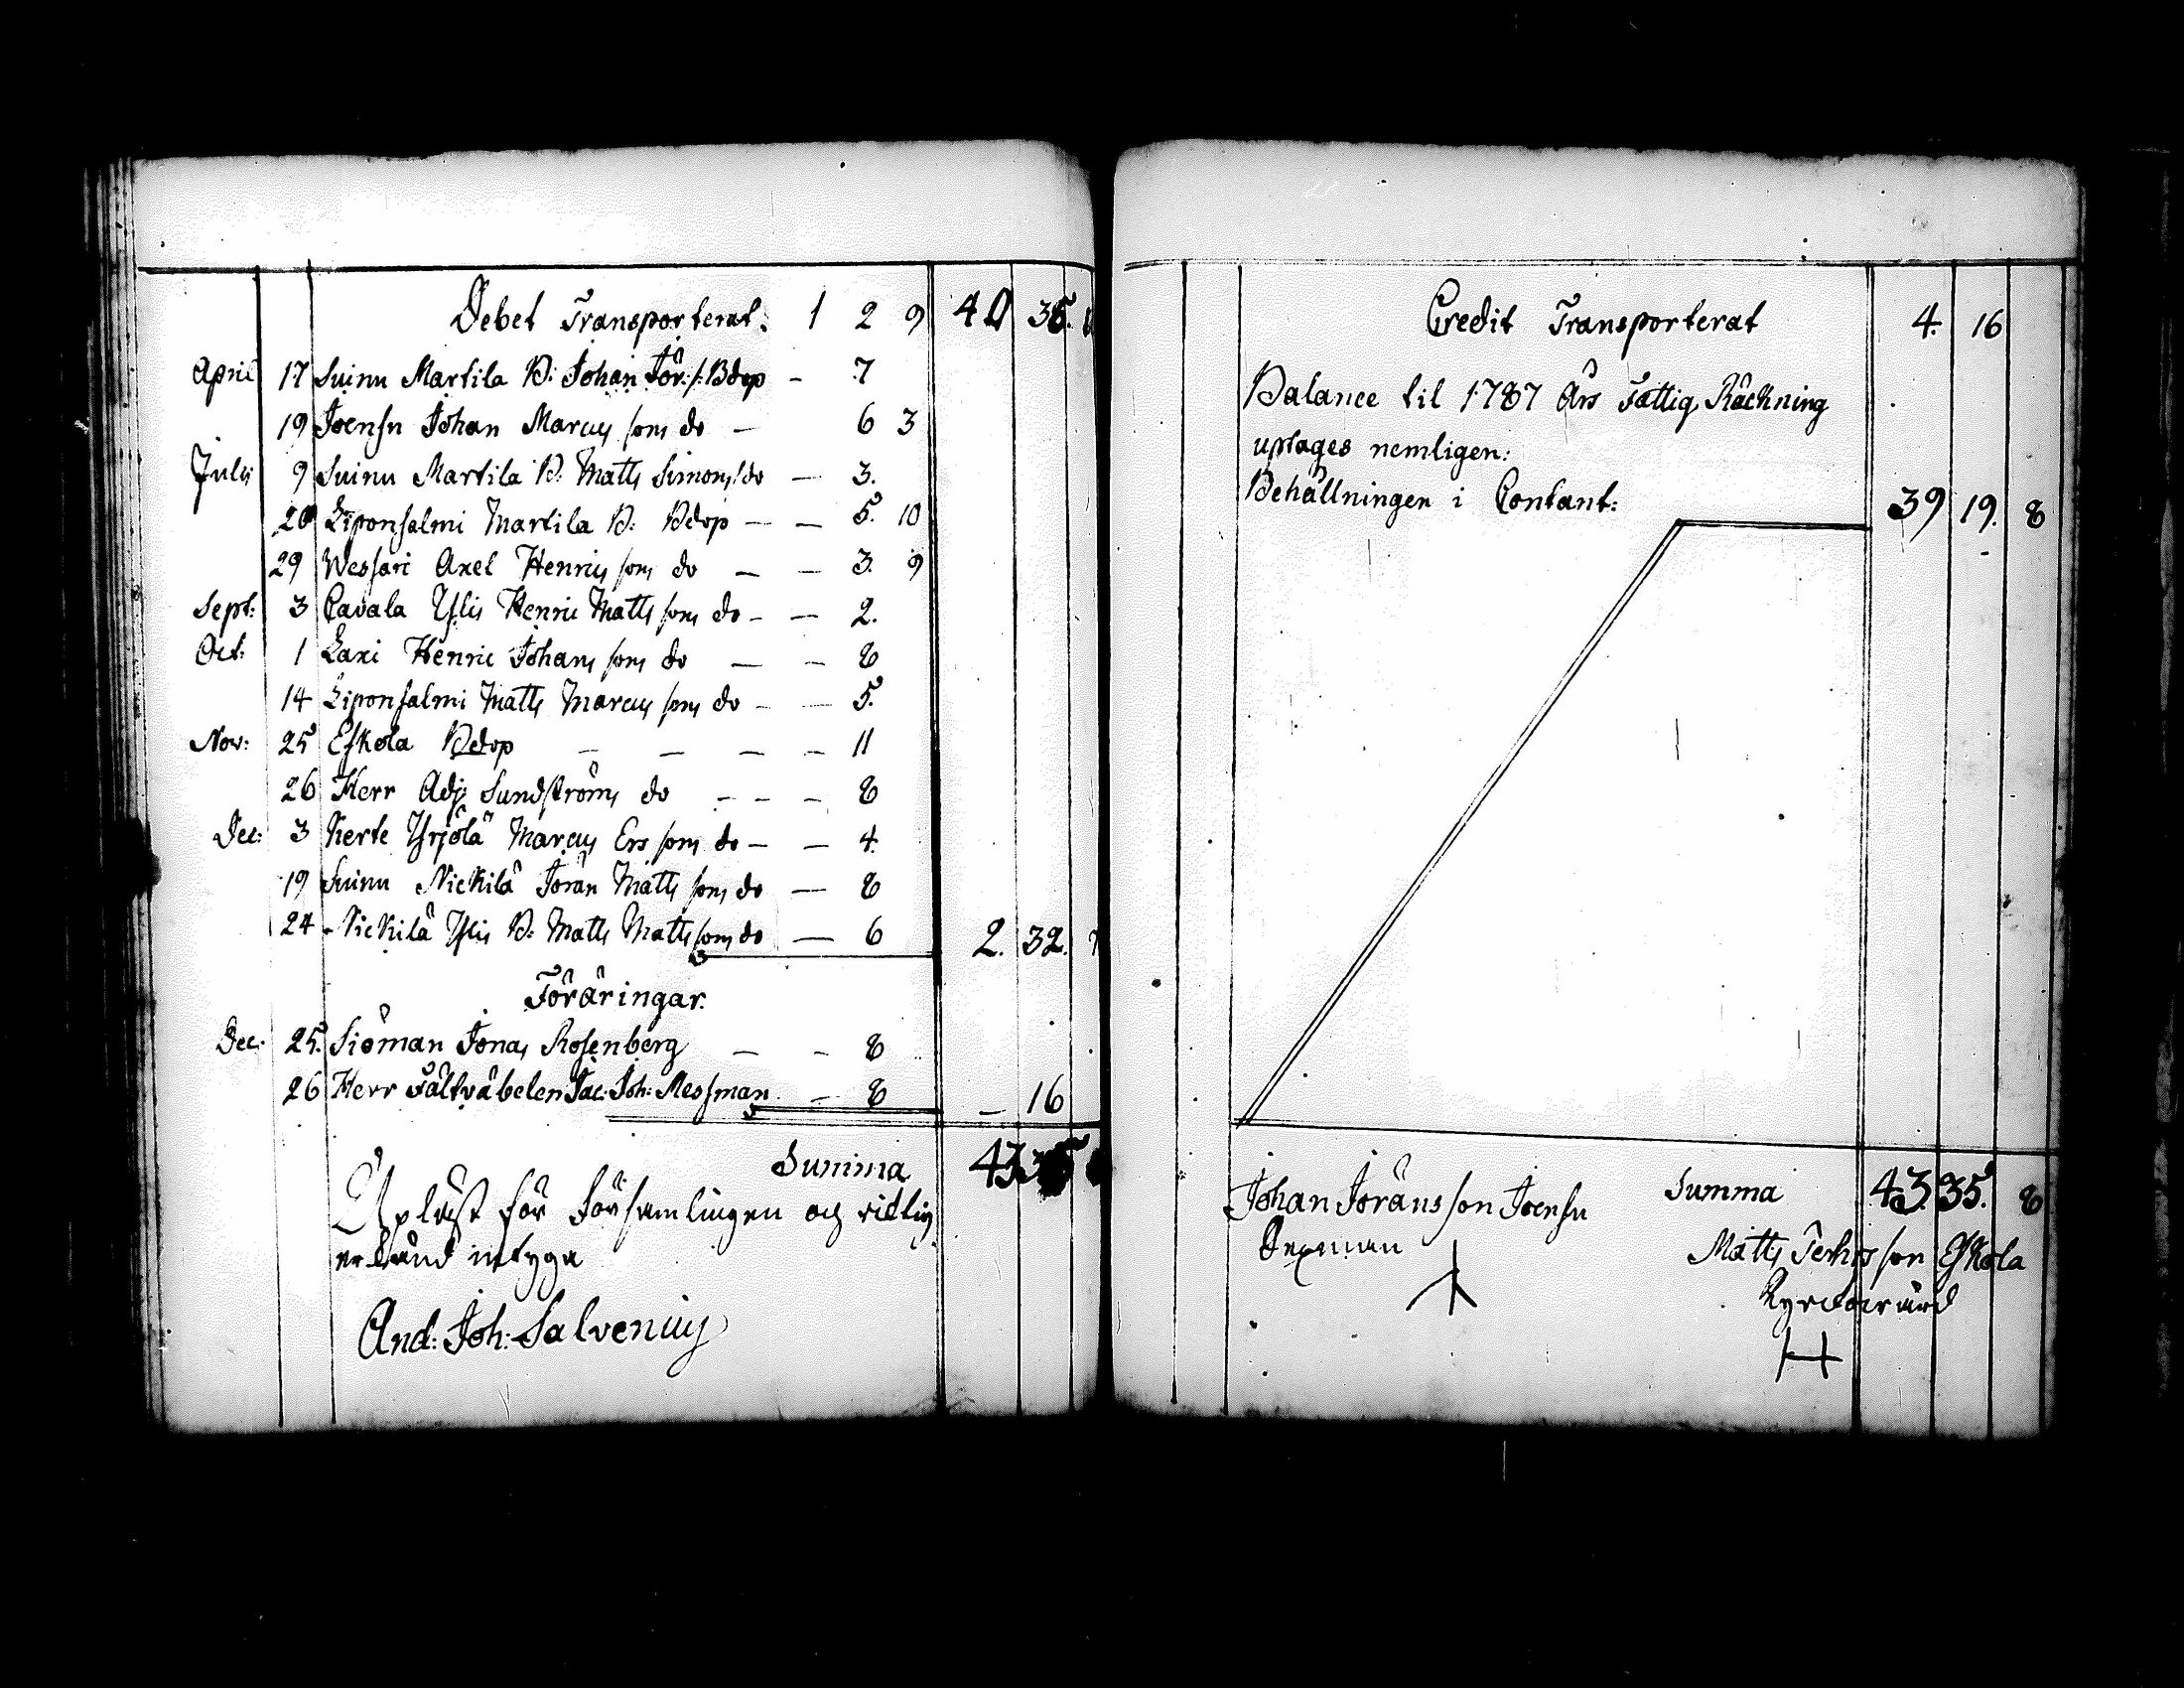 Debet Transporterat: 1 2 9 40 35.
April 17 Suinu Martila B: Johan Jör: s: Bdop — 7
19 Joensu Johan Marcus sons do — 6 3
Julii 9 Suinu Martila B: Matts Simons s: do — 3.
20 Liponsalmi Martila B: Bdop — — 5. 10
29 Wessari Axel Henrics sons do — — 3. 9
Sept: 3 Cavala Ylis Henric Matts sons do — — 2.
Oct: 1 Laxi Henric Johans sons do — — 8
14 Liponsalmi Matts Marcus sons do — — 5.
Nov: 25 Eskola Bdop — — — — 11
26 Herr Adj: Sundströms do — — — 8
Dec: 3 Kerte Yrjölä Marcus Ers sons do — — 4.
19 Suinu Nickilä Jöran Matts sons do — 8
24 Nickilä Ylis B: Matts Matts sons do — 6 2. 32. 7
Föräringar.
Dec. 25. Siöman Jonas Rosenberg — — 8
26 Herr Fältväbelen Jac: Joh: Messman — 8 — 16
Summa 43
Upläst för Församlingen och riktig
erkänd intyga
And: Joh: Salvenius
Credit Transporterat 4. 16
Balance til 1787 Års Fattig Räckning
uptages nemligen:
Behållningen i Contant: 39 19. 8
Summa 43. 35. 8
Johan Jöransson Joensu
Sexman
Matts Terhisson Eskola
Kyrckovärd